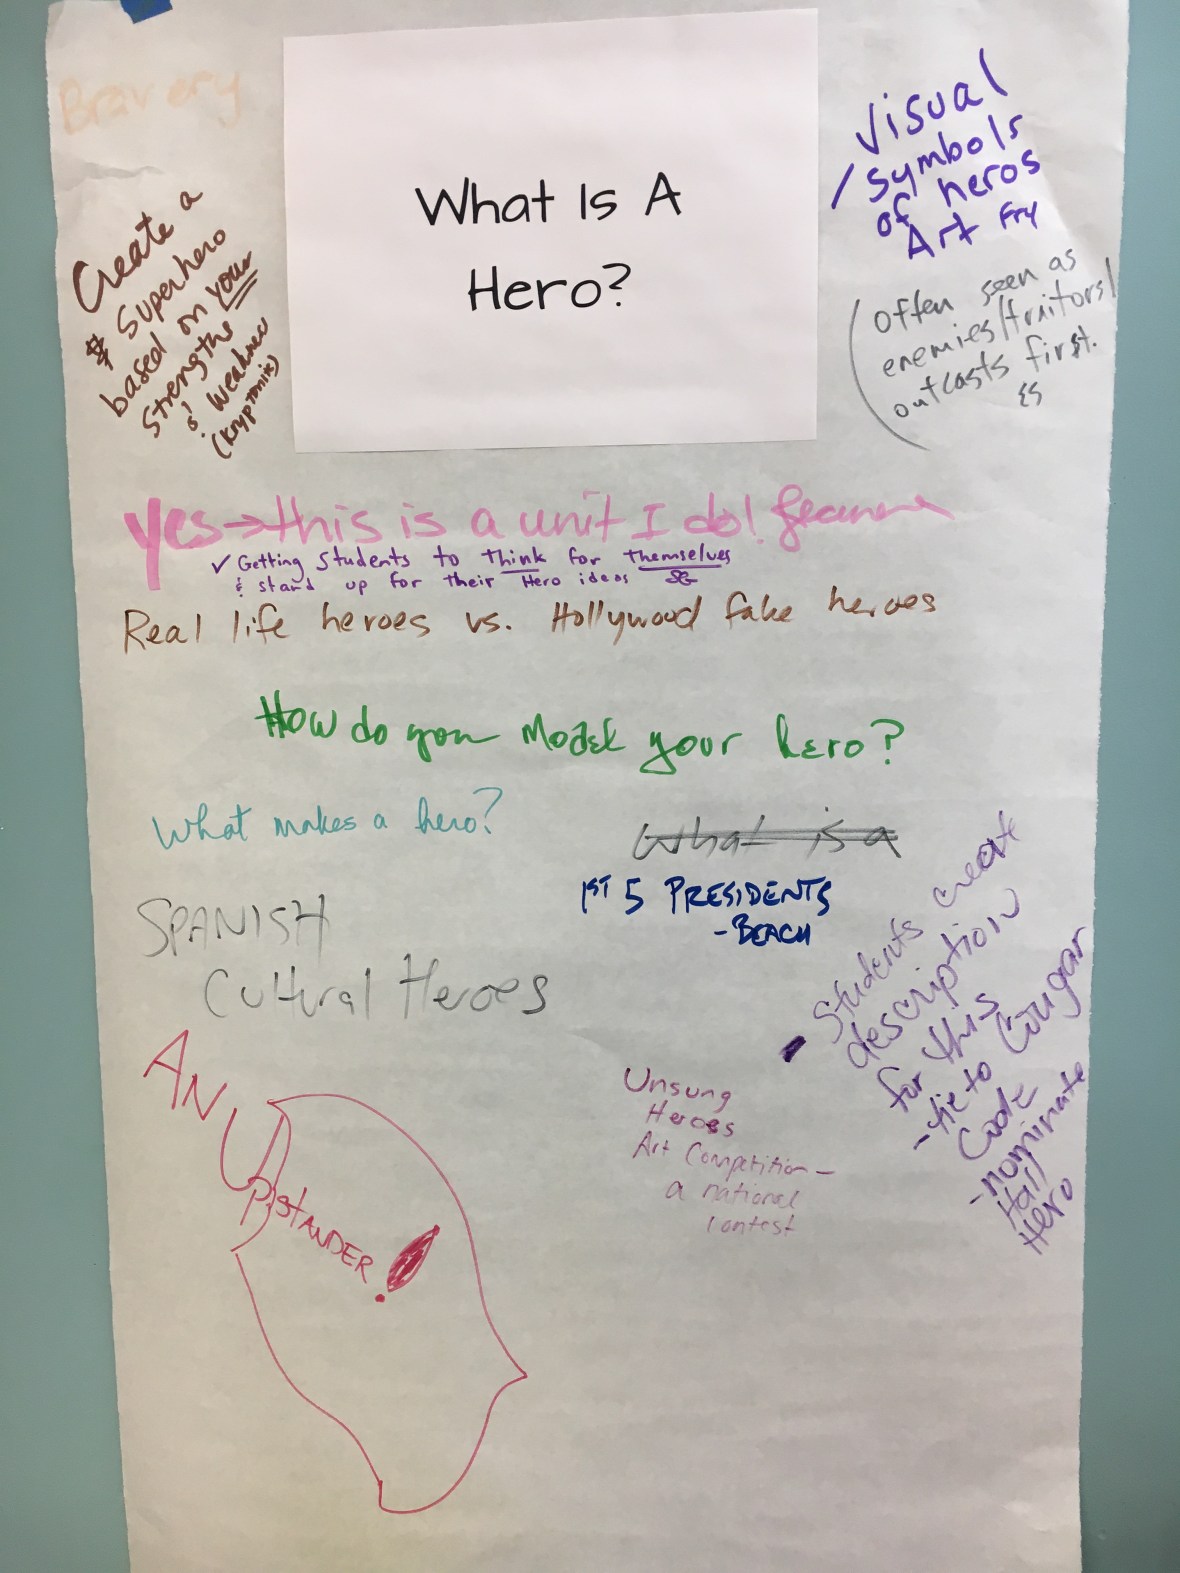 Bravery
What Is A
Hero?
Visual
symbols
of heros
Art Fry
Create a
Superhero
based on your
strengths
& weakness
(kryptonite)
(often seen as
enemies/traitors/
outcasts first.
ES
yes → this is a unit I do!
✓ Getting Students to think for themselves
& stand up for their Hero ideas SG
Real life heroes vs. Hollywood fake heroes
How do you Model your hero?
What makes a hero?
What is a
1ST 5 PRESIDENTS
- BEACH
SPANISH
Cultural Heroes
Students create
description
for this
- tie to Cougar
Code
- nominate
Hall
Hero
AN UPSTANDER!
Unsung
Heroes
Art Competition -
a national
contest